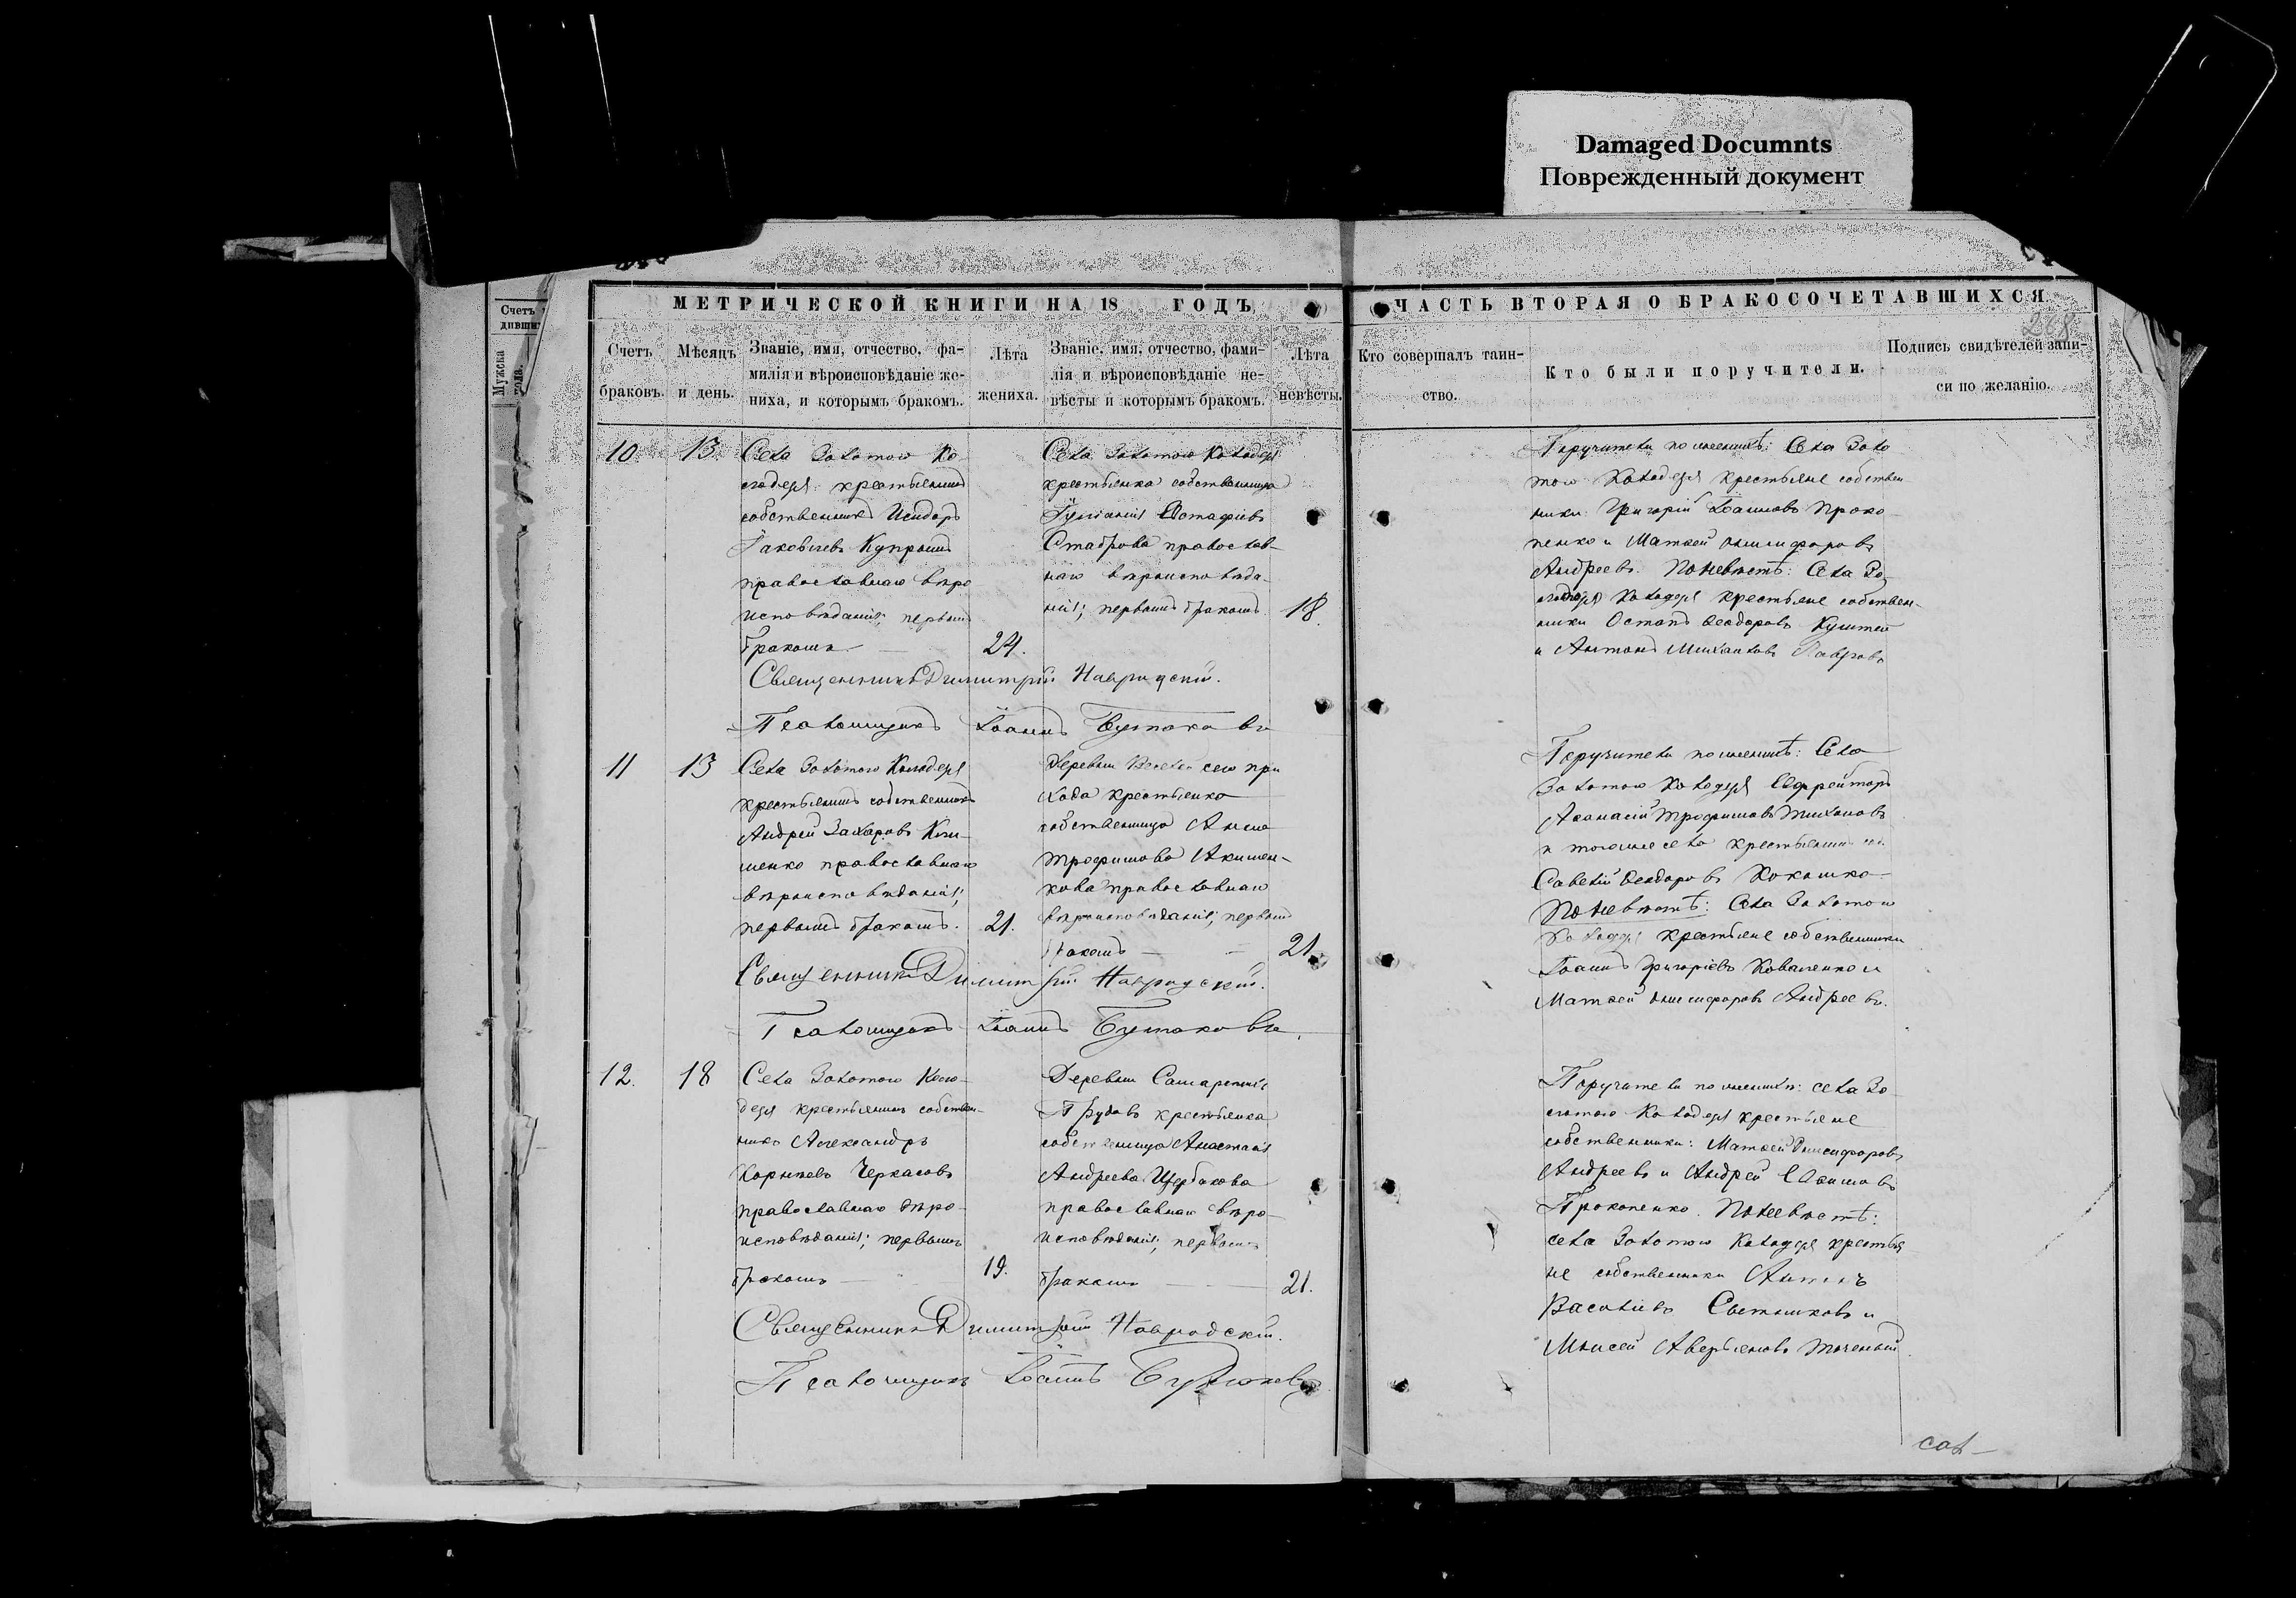 Damaged Documnts
Поврежденный документ
МЕТРИЧЕСКОЙ КНИГИ НА 18 ГОДЪ
ЧАСТЬ ВТОРАЯ О БРАКОСОЧЕТАВШИХСЯ.
268
Счетъ
Мужска
Счетъ браковъ.
Мѣсяцъ и день.
Званіе, имя, отчество, фа-
милія и вѣроисповѣданіе же-
ниха, и которымъ бракомъ.
Лѣта
жениха.
Званіе, имя, отчество, фами-
лія и вѣроисповѣданіе не-
вѣсты и которымъ бракомъ.
Лѣта
невѣсты.
Кто совершалъ таин-
ство.
Кто были поручители.
Подпись свидѣтелей запи-
си по желанію.
10.
13.
Села Золотого Ко
лодезя крестьянинъ
собственникъ Исидоръ
Іаковлевъ Купринъ
православнаго вѣро
исповѣданія; первымъ
бракомъ
24.
Села Золотого Колодезя
крестьянка собственница
Евстафіева
православ-
наго вѣроисповѣда-
нія; первымъ бракомъ
18.
Поручители по женихѣ: Села Золо
того Колодезя крестьяне собствен
ники Григорій Іоанновъ Проко
пенко и Матѳей Онисифоровъ
Андреевъ. По невѣстѣ: Села Зо-
Колодезя крестьяне собствен-
ники Остапъ Ѳеодоровъ
и Антонъ Михаиловъ
Священникъ Димитрій Навродскій.
Псаломщикъ Іоаннъ Бутаковъ
11
13
Села Золотого Колодезя
крестьянинъ собственникъ
Андрей Захаровъ Кли-
менко православнаго
вѣроисповѣданія;
первымъ бракомъ.
21.
Деревни сего при
хода крестьянка
собственница Анна
Трофимова Акимен-
кова православнаго
вѣроисповѣданія; первымъ
бракомъ
21.
Поручители по женихѣ: Села
Золотого Колодезя Ефрейторъ
Аѳанасій Трофимовъ Тихоновъ
и тогоже села крестьянинъ соб.
Савелій Ѳеодоровъ
По невѣстѣ: Села Золотого
Колодезя крестьяне собственники
Іоаннъ Григоріевъ Коваленко и
Матѳей Онисифоровъ Андреевъ.
Священникъ Димитрій Навродскій.
Псаломщикъ Іоаннъ Бутаковъ.
12.
18
Села Золотого Коло-
дезя крестьянинъ собствен-
никъ Александръ
Корнѣевъ Черкасовъ
православнаго вѣро-
исповѣданія; первымъ
бракомъ
19.
Деревни
крестьянка
собственница Анастасія
Андреева Щербакова
православнаго вѣро-
исповѣданія, первымъ
бракомъ
21.
Поручители по женихѣ: села Зо-
лотого Колодезя крестьяне
собственники: Матѳей Онисифоровъ
Андреевъ и Андрей
Прокопенко. По невѣстѣ:
села Золотого Колодезя крестья
не собственники
Василіевъ Сытниковъ и
Моисей Аверьяновъ Точеный.
Священникъ Димитрій Навродскій.
Псаломщикъ Іоаннъ Бутаковъ